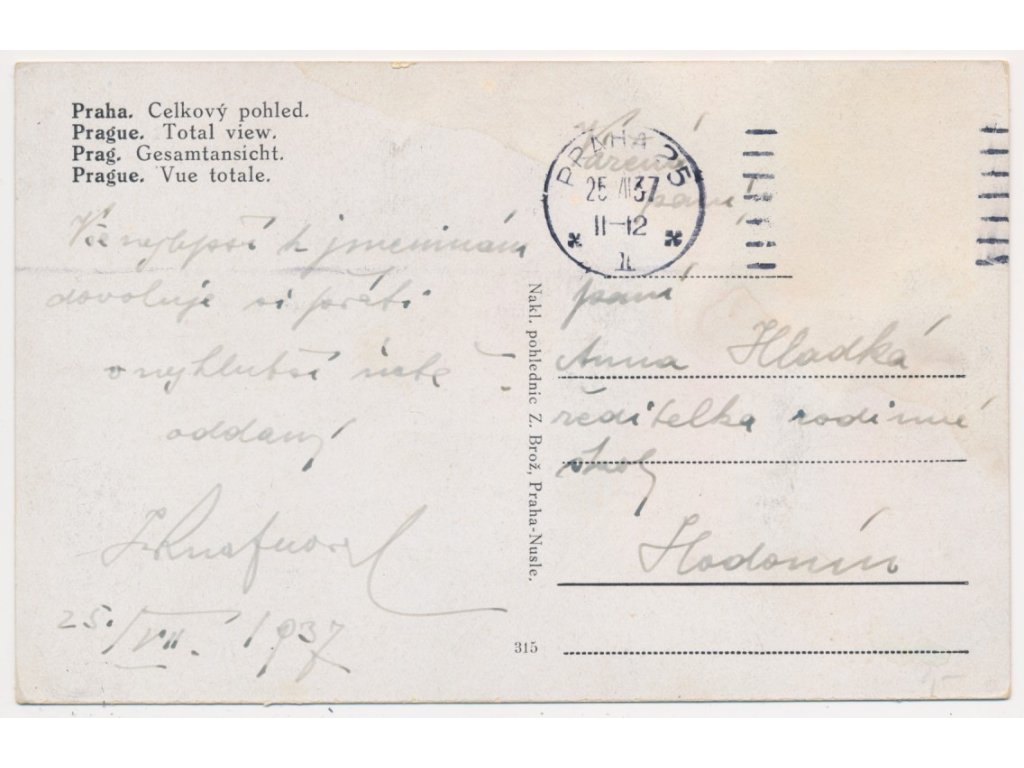 Praha. Celkový pohled.
Prague. Total view.
Prag. Gesamtansicht.
Prague. Vue totale.
Vše nejlepší k jmeninám
dovoluje si přáti
v nejhlubší úctě
oddaný
25./VII. 1937
PRAHA 25
25 VII 37
11-12
Vážená
paní
paní
Anna Hladká
ředitelka rodinné
školy
Hodonín
Nakl. pohlednic Z. Brož, Praha-Nusle.
315